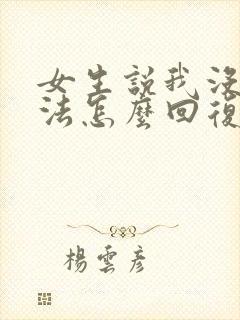 女生說我沒
法怎麼回復
楊雲彥